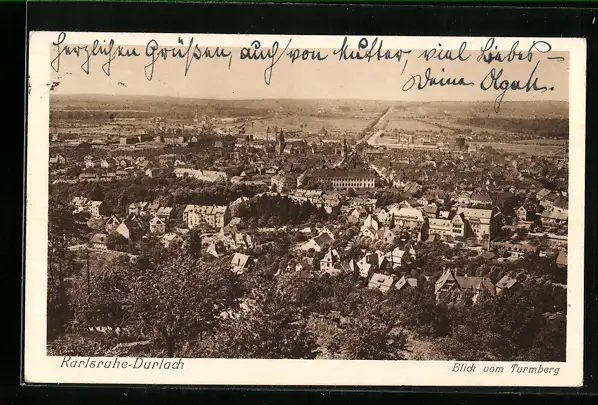 herzlichen Grüßen, auch von Mutter viel Liebes
Deine Olga.
Karlsruhe-Durlach
Blick vom Turmberg